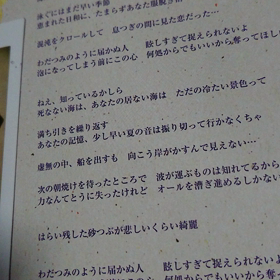 泳ぐにはまだ早い季節
混沌をクロールして　息つぎの間に見た恋だった…
わだつみのように届かぬ人　眩しすぎて捉えられないよ
泡になってしまう前にこの心　何処からでもいいから奪ってほし
ねえ、知っているかしら
死なない海は、あなたの居ない海は　ただの冷たい景色って
満ち引きを繰り返す
あなたの記憶、少し早い夏の音は振り切って行かなくちゃ
虚無の中、船を出すも　向こう岸がかすんで見えない…
次の朝焼けを待ったところで　波が運ぶものは知れてるから
力なんてとうに失ったけれど　オールを漕ぎ進めるしかない
ほらい残した砂つぶが悲しいくらい綺麗
わだつみのように届かぬ人　眩しすぎて捉えられない